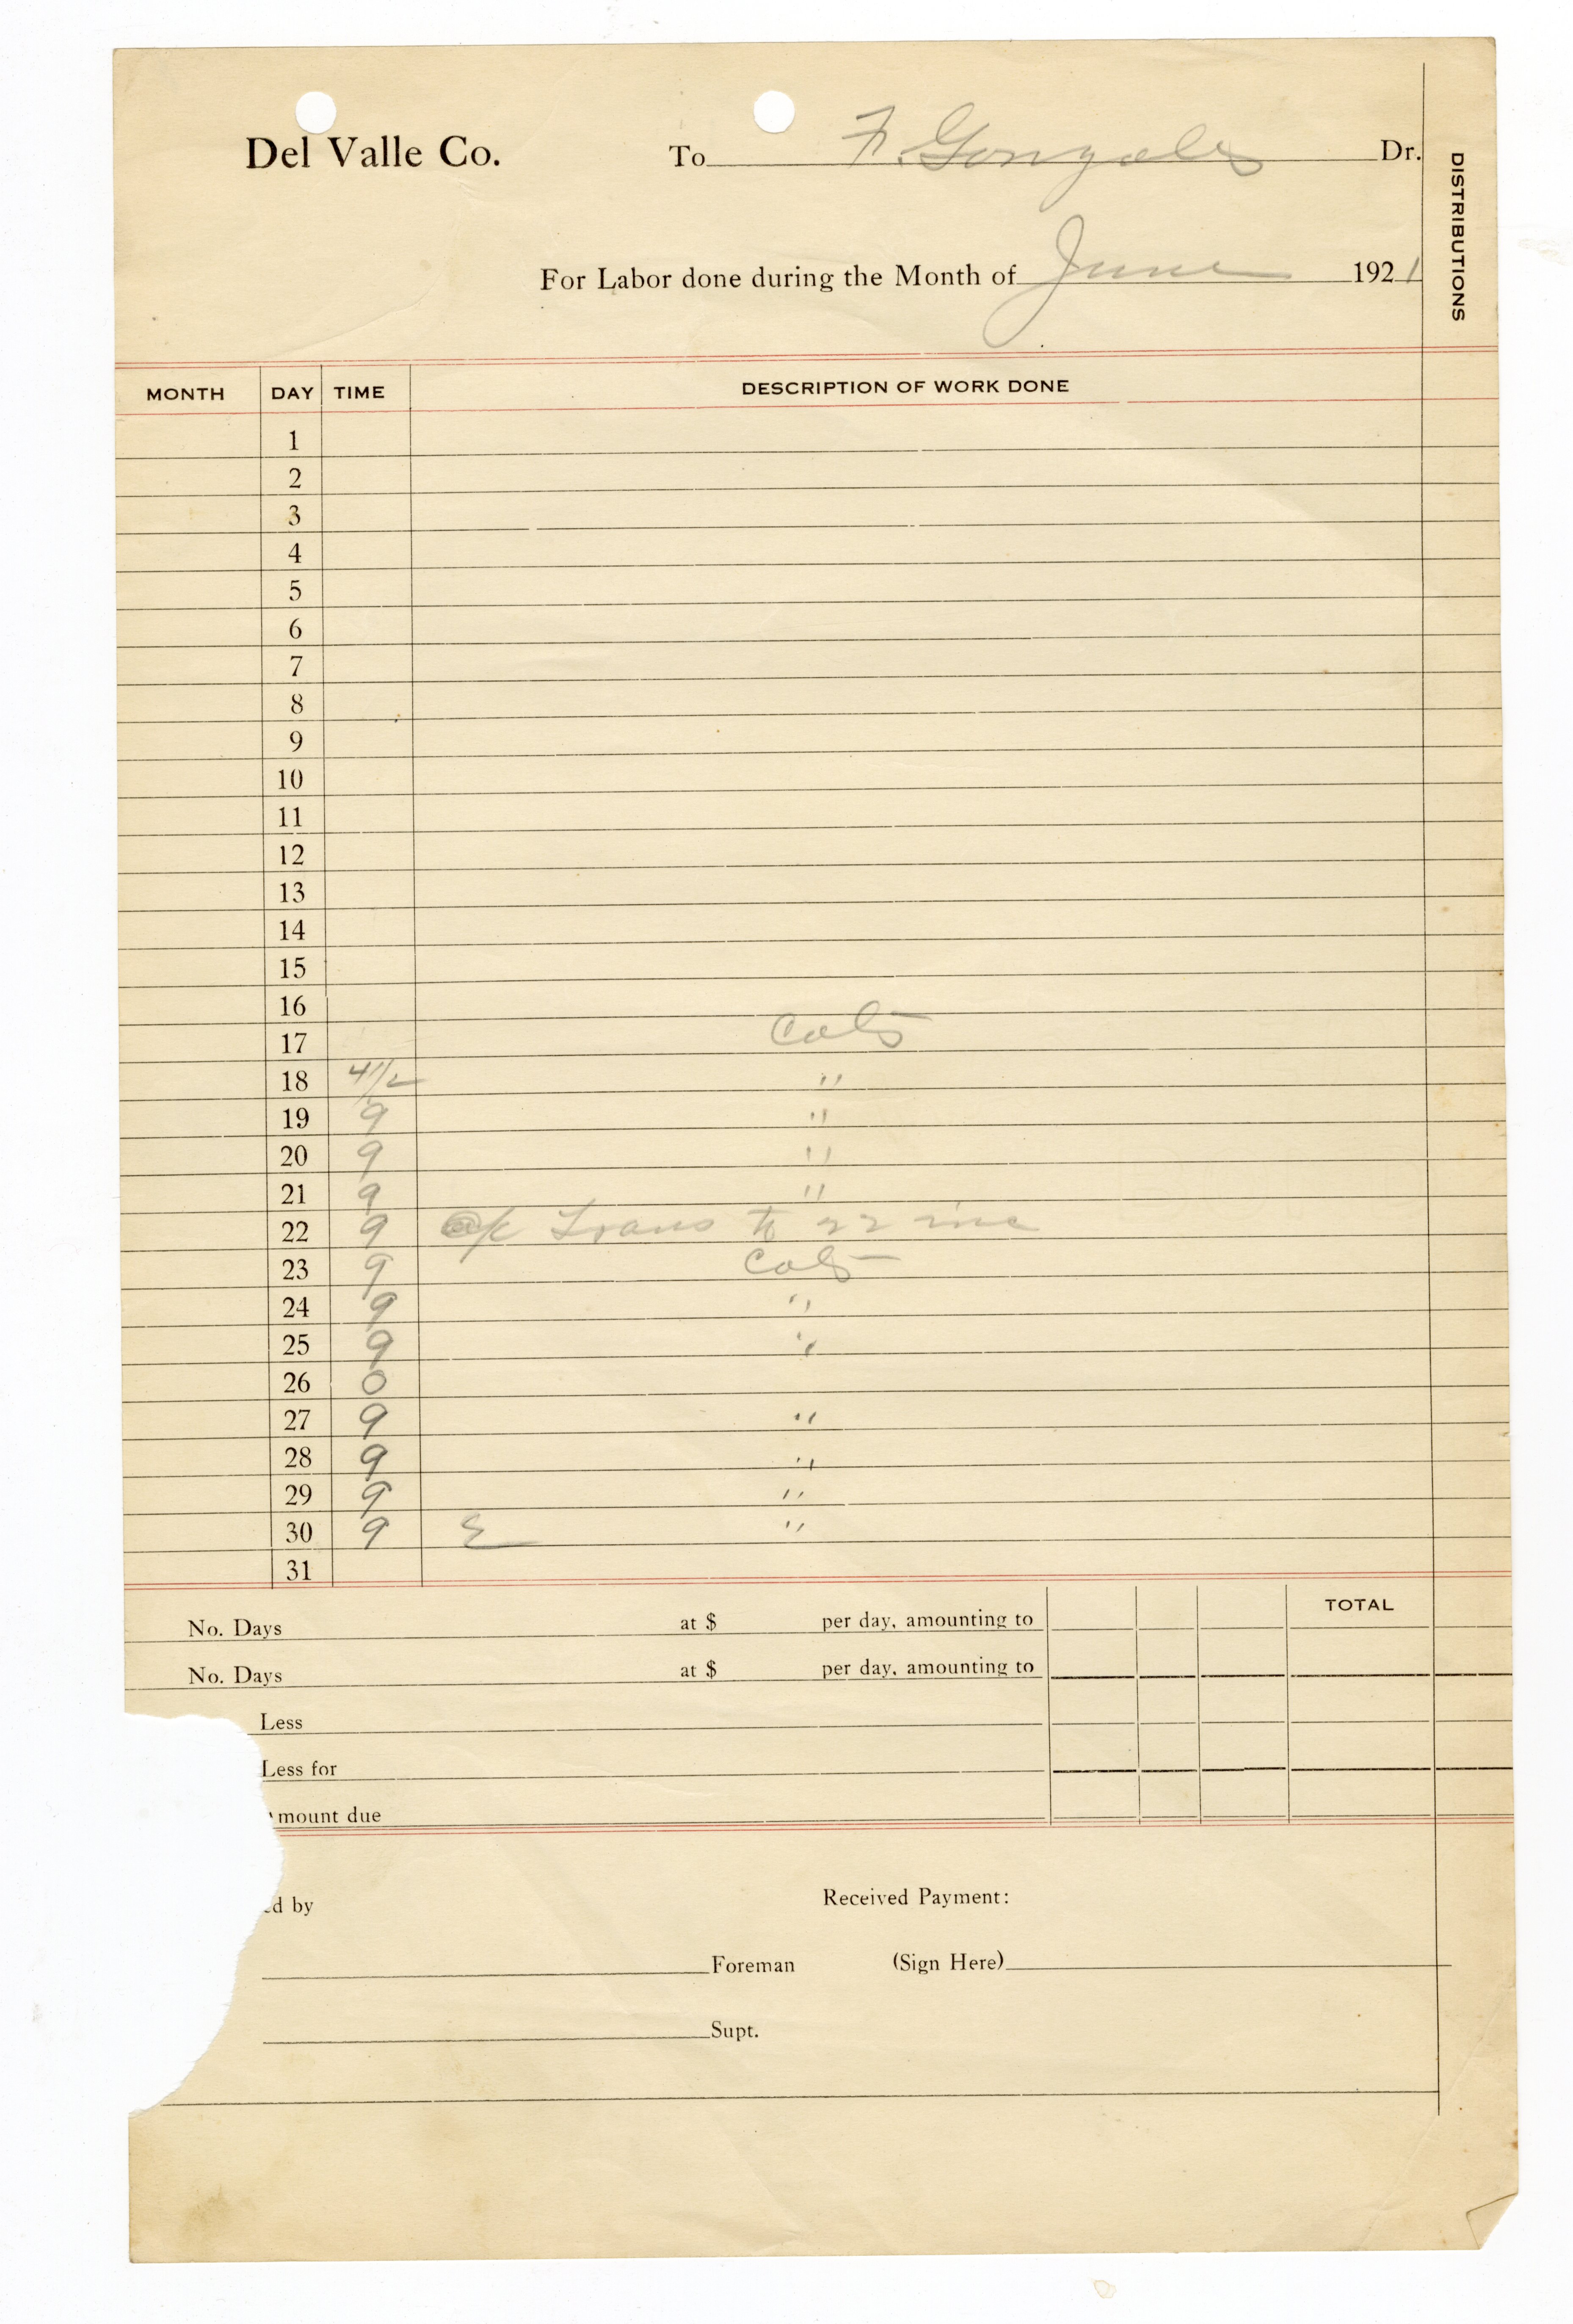 Del Valle Co. To F. Gonzales Dr.
DISTRIBUTIONS
For Labor done during the Month of June 1921
MONTH DAY TIME DESCRIPTION OF WORK DONE
1
2
3
4
5
6
7
8
9
10
11
12
13
14
15
16
17
18 4 1/2 "
19 9 "
20 9 "
21 9 "
22 9 Trans to 22 inc
23 9
24 9 "
25 9 "
26 0
27 9 "
28 9 "
29 9 "
30 9 "
31
TOTAL
No. Days at $ per day, amounting to
No. Days at $ per day, amounting to
Less
Less for
mount due
ed by Received Payment:
Foreman (Sign Here)
Supt.